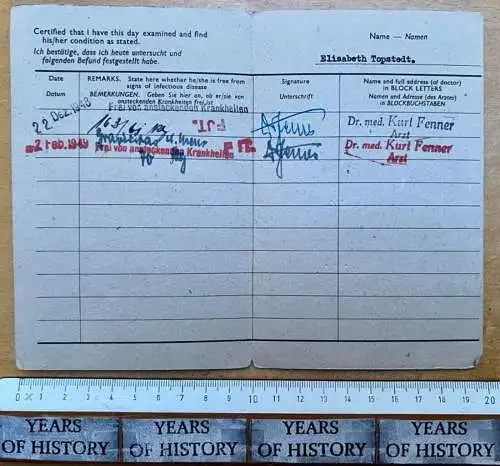 Certified that I have this day examined and find
his/her condition as stated.
Ich bestätige, dass ich heute untersucht und
folgenden Befund festgestellt habe.
Name — Namen
Elisabeth Topstedt.
Date
Datum
REMARKS. State here whether he/she is free from
signs of infectious disease
BEMERKUNGEN. Geben Sie hier an, ob er/sie von
ansteckenden Krankheiten frei ist
Signature
Unterschrift
Name and full address (of doctor)
in BLOCK LETTERS
Namen und Adresse (des Arztes)
in BLOCKBUCHSTABEN
22 Dez. 1948
Frei von ansteckenden Krankheiten
Dr. med. Kurl Fenner
Arzt
2 Feb. 1949
Frei von ansteckenden Krankheiten
Dr. med. Kurl Fenner
Arzt
0 1 2 3 4 5 6 7 8 9 10 11 12 13 14 15 16 17 18 19 20
YEARS
OF HISTORY
YEARS
OF HISTORY
YEARS
OF HISTORY
YEARS
OF HISTORY